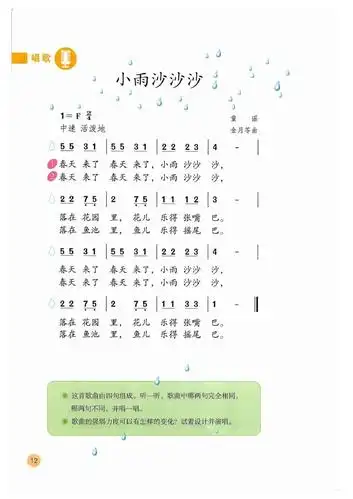 唱歌
小雨沙沙沙
1= F 2/4
童 谣
中速 活泼地
金月苓曲
5 5 3 1 | 5 5 3 1 | 2 2 2 3 | 4 - |
1 春天 来了 春天 来了, 小雨 沙沙 沙,
2 春天 来了 春天 来了, 小雨 沙沙 沙,
2 2 7 5 | 2 7 5 | 2 2 2 3 | 1 - |
落在 花园 里, 花儿 乐得 张嘴 巴。
落在 鱼池 里, 鱼儿 乐得 摇尾 巴。
5 5 3 1 | 5 5 3 1 | 2 2 2 3 | 4 - |
春天 来了 春天 来了, 小雨 沙沙 沙,
春天 来了 春天 来了, 小雨 沙沙 沙,
2 2 7 5 | 2 7 5 | 2 2 2 3 | 1 - ‖
落在 花园 里, 花儿 乐得 张嘴 巴。
落在 鱼池 里, 鱼儿 乐得 摇尾 巴。
这首歌曲由四句组成。听一听,歌曲中哪两句完全相同,
哪两句不同,并唱一唱。
歌曲的强弱力度可以有怎样的变化?试着设计并演唱。
12